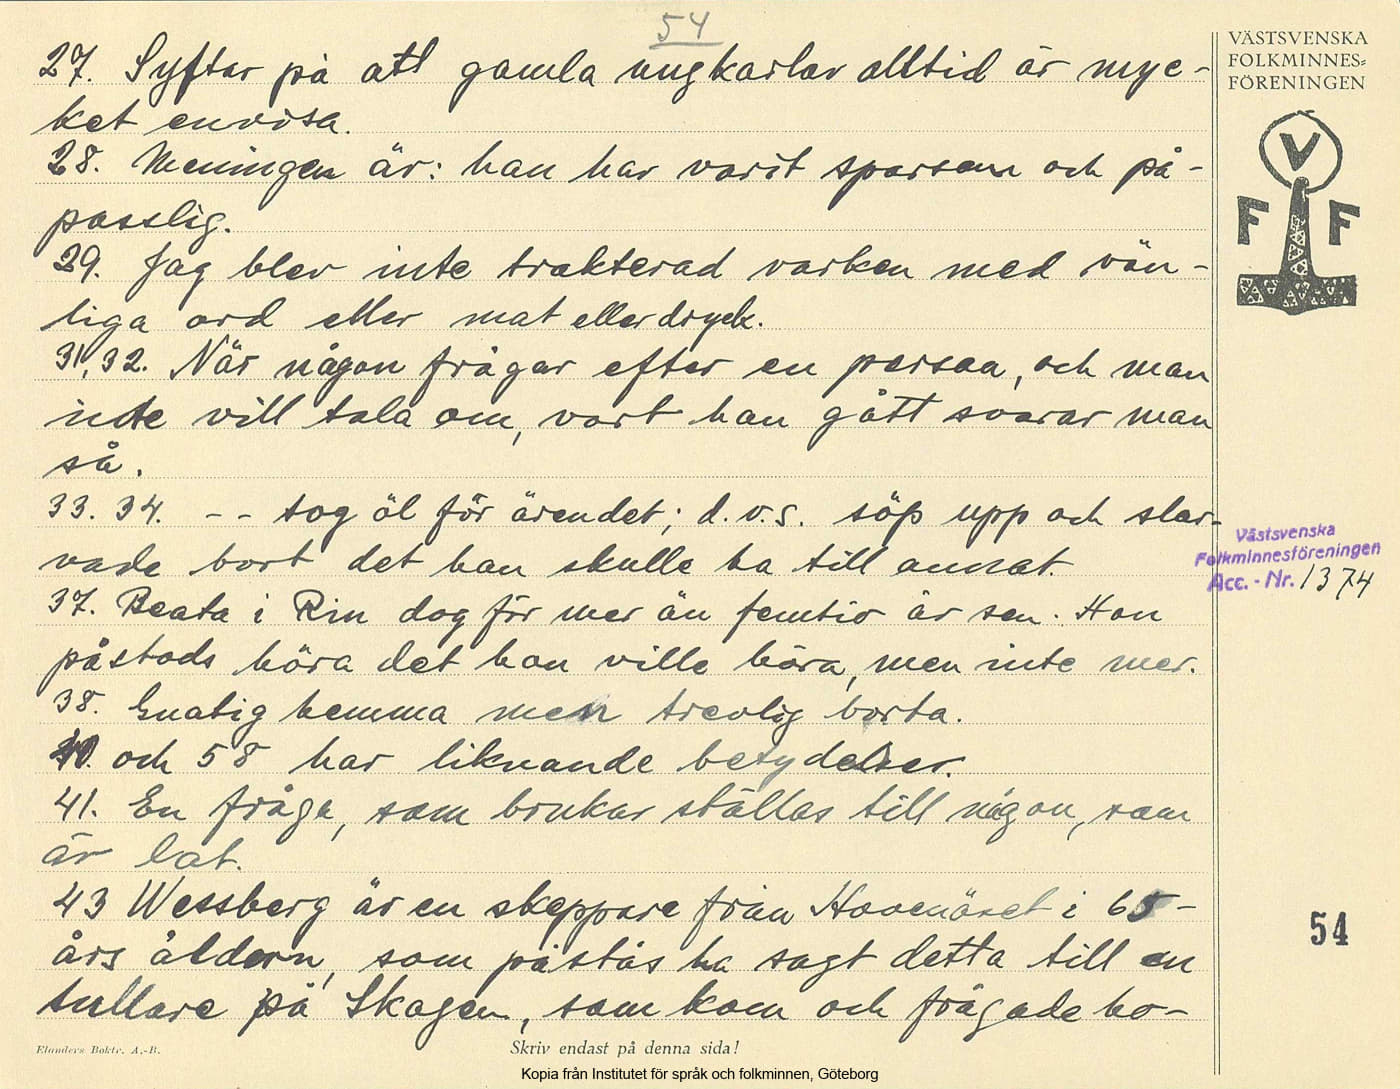 54
27. Syftar på att gamla ungkarlar alltid är myc-
ket envisa.
28. Meningen är: han har varit sparsam och på-
passlig.
29. Jag blev inte trakterad varken med vän-
liga ord eller mat eller dryck.
31, 32. När någon frågar efter en person, och man
inte vill tala om, vart han gått svarar man
så.
33. 34. - - tog öl för ärendet; d.v.s. söp upp och slar-
vade bort det han skulle ha till annat.
37. Beata i Rin dog för mer än femtio år sen. Hon
påstods höra det hon ville höra, men inte mer.
38. Gnatig hemma men trevlig borta.
40. och 58 har liknande betydelser.
41. En fråga, som brukar ställas till någon, som
är lat.
43 Wessberg är en skeppare från Hovenäset i 65-
års åldern, som påstås ha sagt detta till en
tullare på Skagen, som kom och frågade ho-
VÄSTSVENSKA
FOLKMINNES=
FÖRENINGEN
V
F F
Västsvenska
Folkminnesföreningen
Acc. - Nr. 1374
54
Elanders Boktr. A.-B.
Skriv endast på denna sida!
Kopia från Institutet för språk och folkminnen, Göteborg